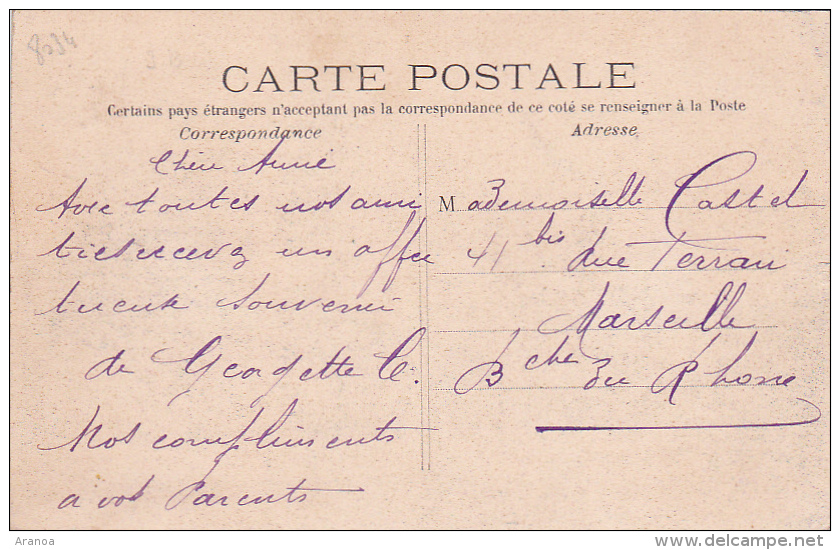 8094
CARTE POSTALE
Certains pays étrangers n'acceptant pas la correspondance de ce coté se renseigner à la Poste
Correspondance
Chère Amie
Avec toutes nos ami
tiés recevez un affec
tueux Souvenir
de Georgette C.
Nos compliments
a vos Parents
Adresse
Mademoiselle Castel
41 bis Rue Terrau
Marseille
Bche Du Rhone
Aranoa
www.delcampe.net